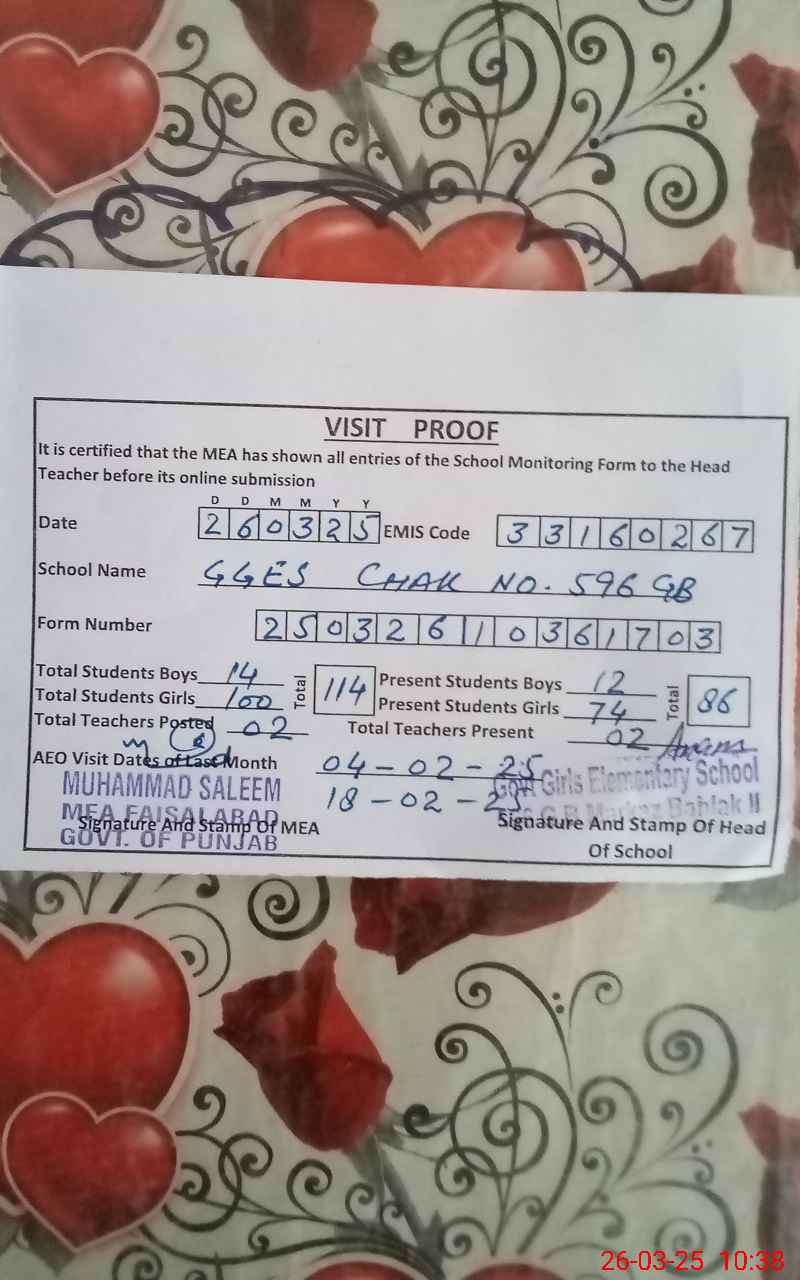 VISIT PROOF
It is certified that the MEA has shown all entries of the School Monitoring Form to the Head
Teacher before its online submission
D D M M Y Y
Date 260325 EMIS Code 33160267
School Name GGES CHAK NO. 596 GB
Form Number 25032610361703
Total Students Boys 14 Total 114 Present Students Boys 12 Total 86
Total Students Girls 100 Present Students Girls 74
Total Teachers Posted 02 Total Teachers Present 02
AEO Visit Dates of Last Month 04-02-25
18-02-25
MUHAMMAD SALEEM
MEA FAISALABAD
GOVT. OF PUNJAB
Signature And Stamp Of MEA
Girls Elementary School
Markaz Bahlak II
Signature And Stamp Of Head
Of School
26-03-25 10:38